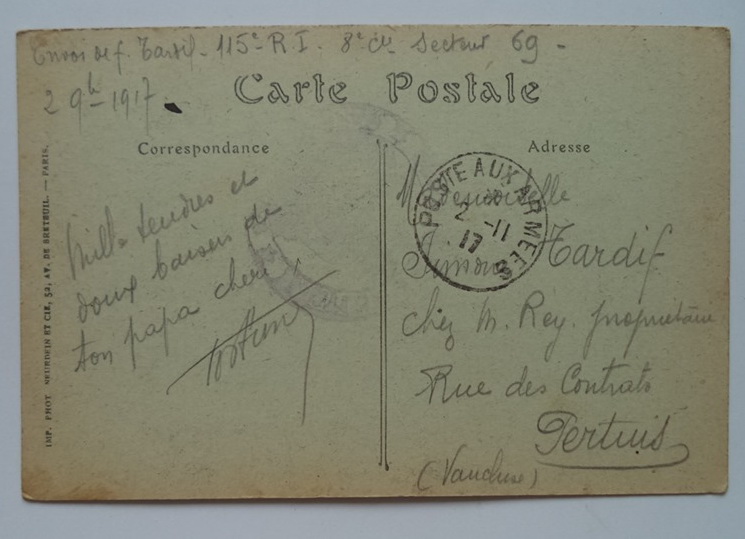 Envoi de f. Tardif - 115e R. I. 8e Cie Secteur 69 -
2 9b - 1917
Carte Postale
Correspondance
Adresse
Mille tendres et
doux baisers de
ton papa cheri
POSTE AUX ARMEES
2 -11
17
Mademoiselle
Simone Tardif
Chez M. Rey. propriétaire
Rue des Contrats
Pertuis
(Vaucluse)
IMP. PHOT. NEURDEIN ET CIE, 52, AV. DE BRETEUIL. — PARIS.